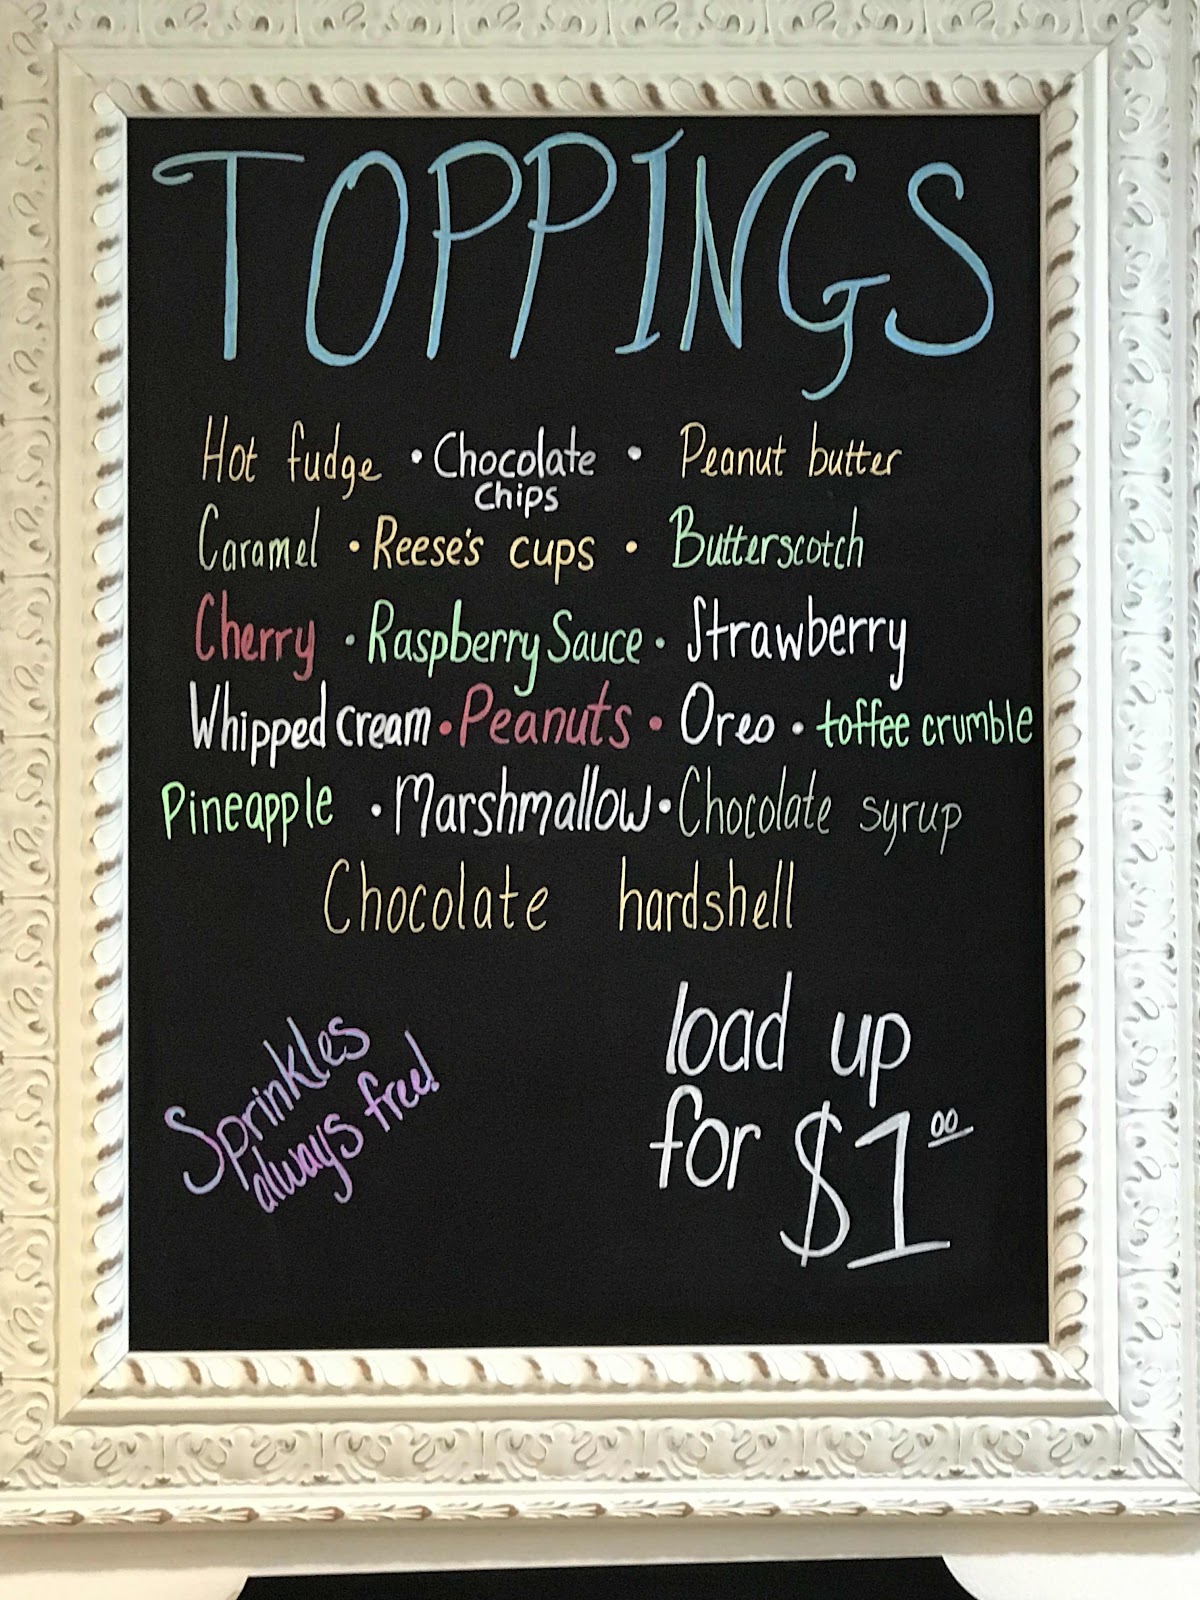 TOPPINGS
Hot fudge • Chocolate Chips • Peanut butter
Caramel • Reese's cups • Butterscotch
Cherry • Raspberry Sauce • Strawberry
Whipped cream • Peanuts • Oreo • toffee crumble
Pineapple • Marshmallow • Chocolate syrup
Chocolate hardshell
Sprinkles
always free!
load up
for $1.00